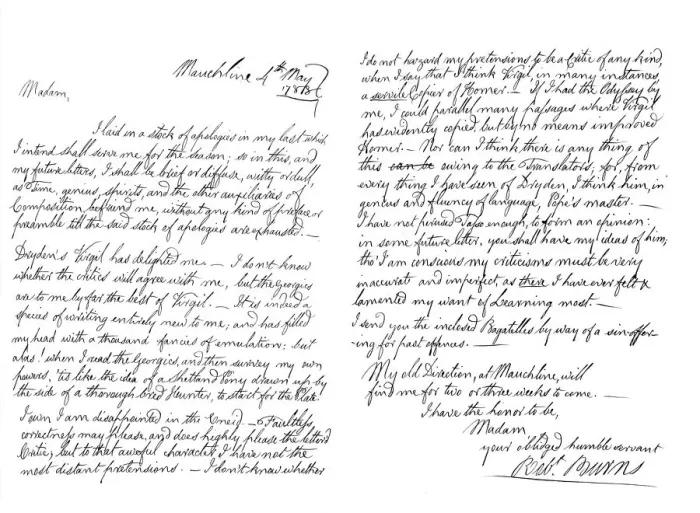 Mauchline 4th May
1788
Madam,
I laid in a stock of apologies in my last which
I intend shall serve me for the season; so in this, and
my future letters, I shall be brief or diffuse, witty or dull,
as Time, genius, spirits, and the other auxiliaries of
Composition befriend me, without any kind of preface or
preamble till the said stock of apologies are exhausted.—
Dryden's Virgil has delighted me.— I don't know
whether the critics will agree with me, but the Georgics
are to me by far the best of Virgil.— It is indeed a
species of writing entirely new to me; and has filled
my head with a thousand fancies of emulation: but
alas! when I read the Georgics, and then survey my own
powers, 'tis like the idea of a Shetland Pony drawn up by
the side of a thorough bred Hunter, to start for the Plate.
I own I am disappointed in the Eneid.— Faultless
correctness may please, and does highly please the letterd
Critic; but to that aweful character I have not the
most distant pretensions.— I don't know whether
I do not hazard my pretensions to be a Critic of any kind,
when I say that I think Virgil, in many instances,
a servile Copier of Homer.— If I had the Odyssey by
me, I could parallel many passages where Virgil
has evidently copied, but by no means improved
Homer.— Nor can I think there is any thing of
this can be owing to the Translators; for, from
every thing I have seen of Dryden, I think him, in
genius and fluency of language, Pope's master.—
I have not perused Tasso enough, to form an opinion:
in some future letter, you shall have my ideas of him;
tho' I am conscious my criticisms must be very
inaccurate and imperfect, as there I have ever felt &
lamented my want of Learning most.—
I send you the inclosed Bagatelles by way of a sin-offer-
-ing for past offences.—
My old Direction, at Mauchline, will
find me for two or three weeks to come.—
I have the honor to be,
Madam
your obliged humble servant
Robt. Burns